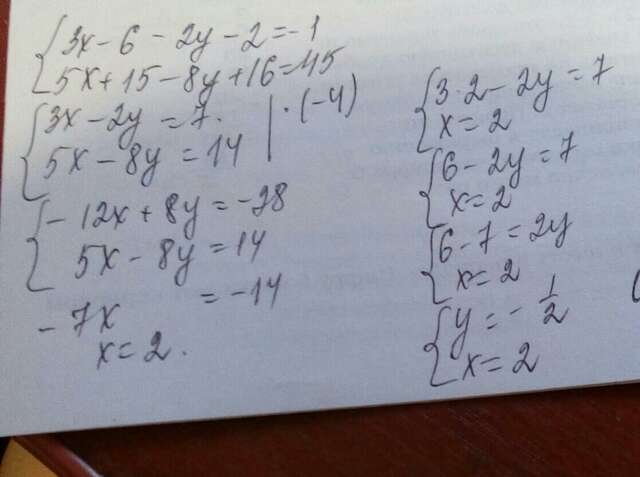 3x-6-2y-2=-1
5x+15-8y+16=45
3x-2y=7. | ·(-4)
5x-8y=14
-12x+8y=-28
5x-8y=14
-7x =-14
x=2.
3·2-2y=7
x=2
6-2y=7
x=2
6-7=2y
x=2
y=-1/2
x=2